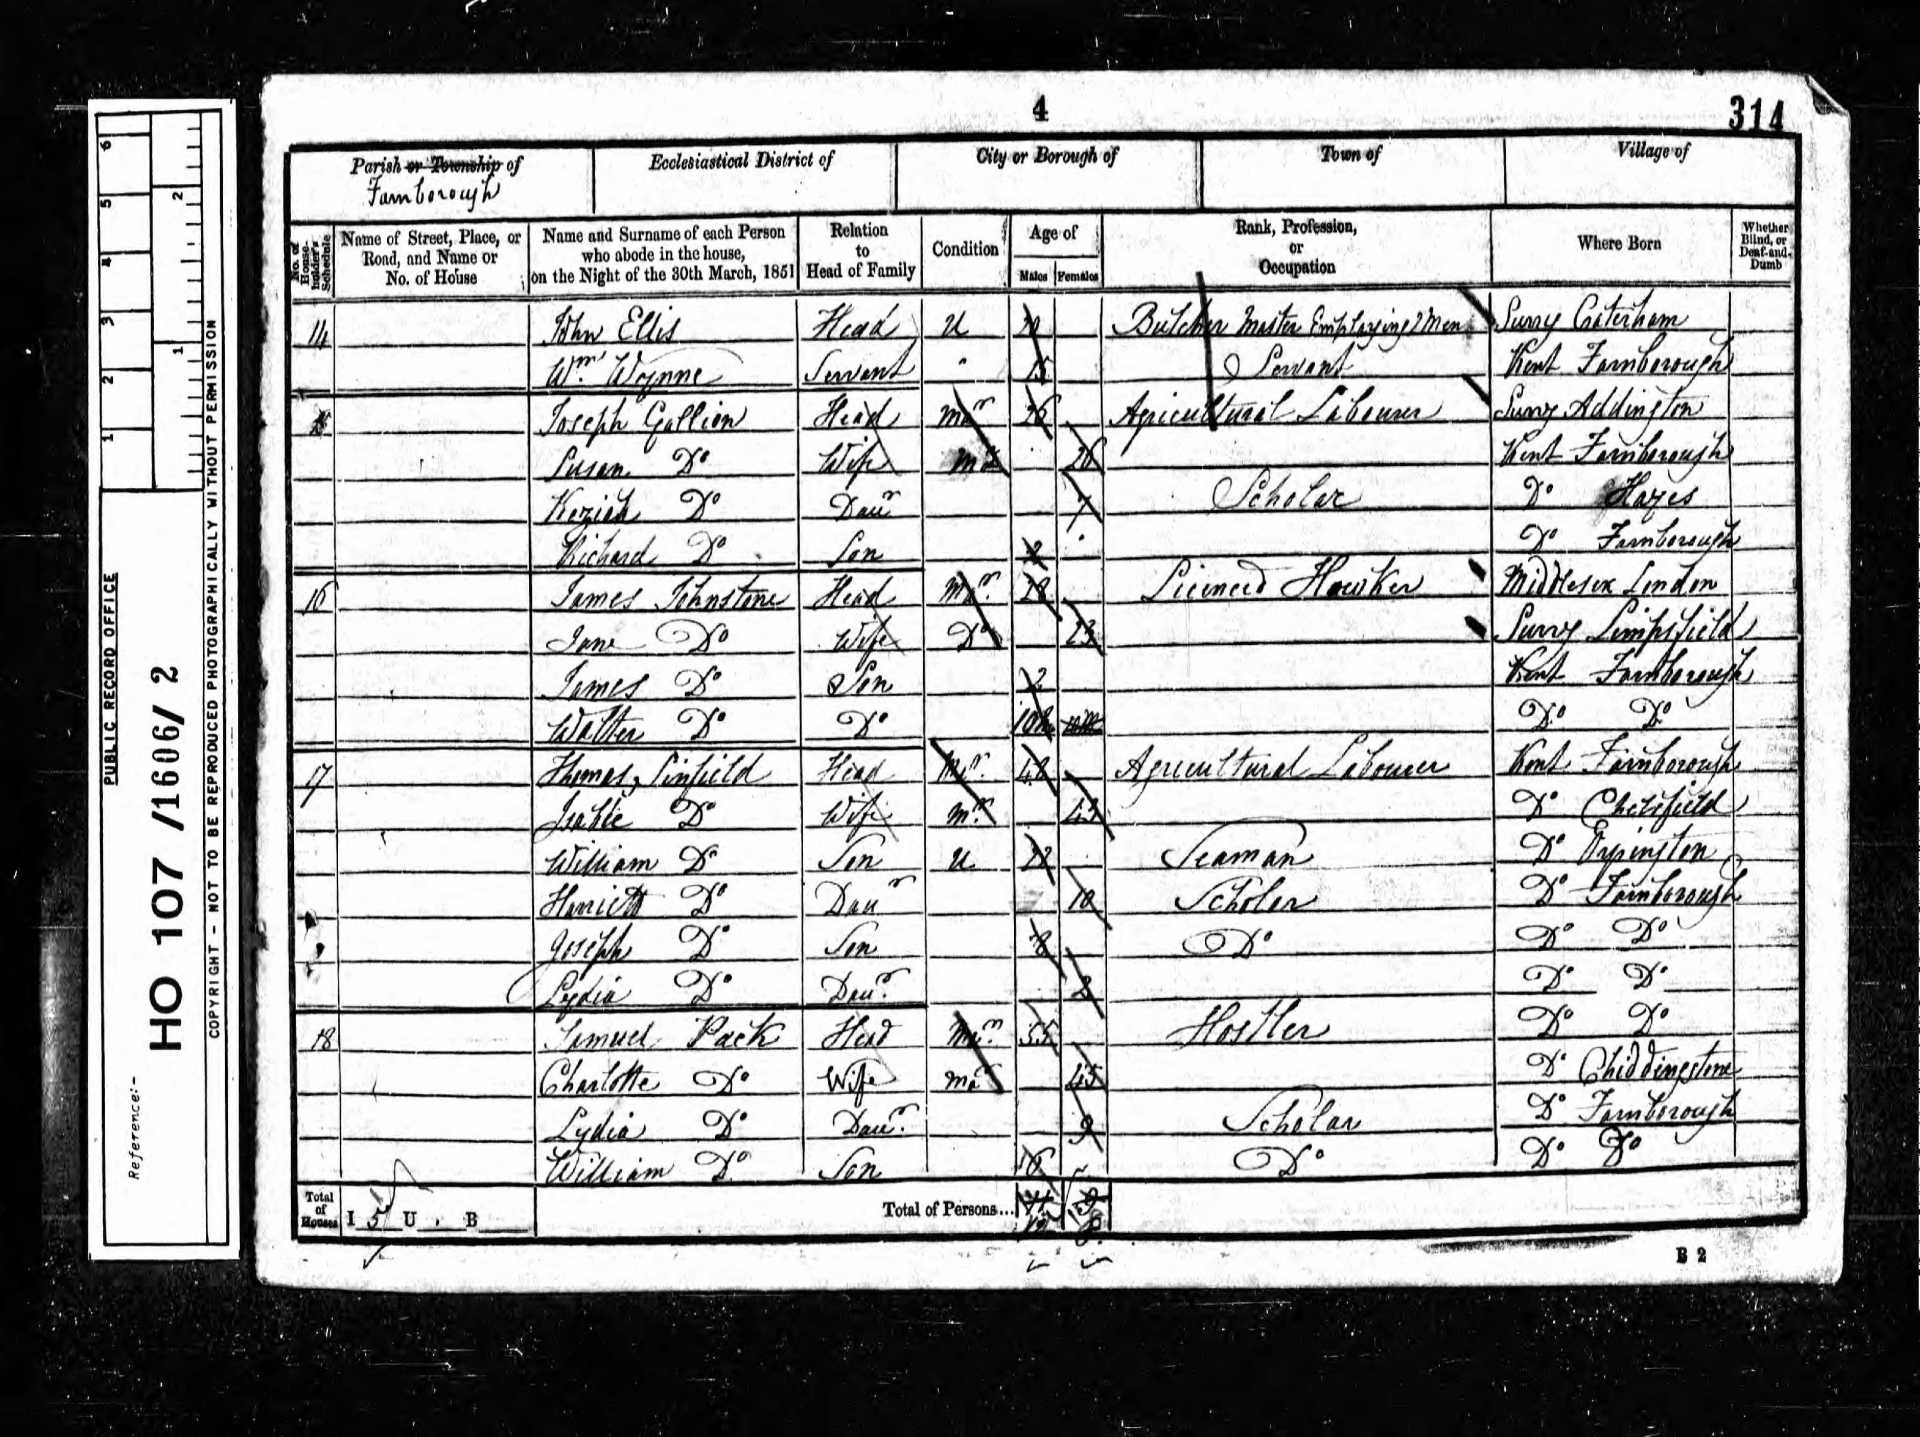 4
314
Parish or Township of
Farnborough
Ecclesiastical District of
City or Borough of
Town of
Village of
No. of House-holder's Schedule
Name of Street, Place, or Road, and Name or No. of House
Name and Surname of each Person who abode in the house, on the Night of the 30th March, 1851
Relation to Head of Family
Condition
Age of
Males
Females
Rank, Profession, or Occupation
Where Born
Whether Blind, or Deaf-and-Dumb
14 John Ellis Head U Butcher Master Employing 2 Men Surry Caterham
Wm Wynne Servant 15 Servant Kent Farnborough
Joseph Gallion Head Mar 26 Agricultural Labourer Surry Addington
Susan Do Wife Mar 26 Kent Farnborough
Keziah Do Daur 7 Scholar Do Hayes
Richard Do Son 2 Do Farnborough
16 James Johnstone Head Mar 28 Licenced Hawker Middlesex London
Jane Do Wife Do 23 Surry Limpsfield
James Do Son 2 Kent Farnborough
Walter Do Do Do Do
17 Thomas Sinfield Head Mar 48 Agricultural Labourer Kent Farnborough
Do Wife Mr 43 Do Chelsfield
William Do Son U 22 Seaman Do Orpington
Harriett Do Daur 10 Scholar Do Farnborough
Joseph Do Son 8 Do Do Do
Lydia Do Daur 2 Do Do
18 Samuel Pack Head Mar 55 Hostler Do Do
Charlotte Do Wife Mar 45 Do Chiddingstone
Lydia Do Daur 9 Scholar Do Farnborough
William Do Son Do Do Do
Total of Houses I 5 U B
Total of Persons...
B 2
PUBLIC RECORD OFFICE
Reference:-
HO 107 /1606/ 2
COPYRIGHT - NOT TO BE REPRODUCED PHOTOGRAPHICALLY WITHOUT PERMISSION
1 2 3 4 5 6
1 2